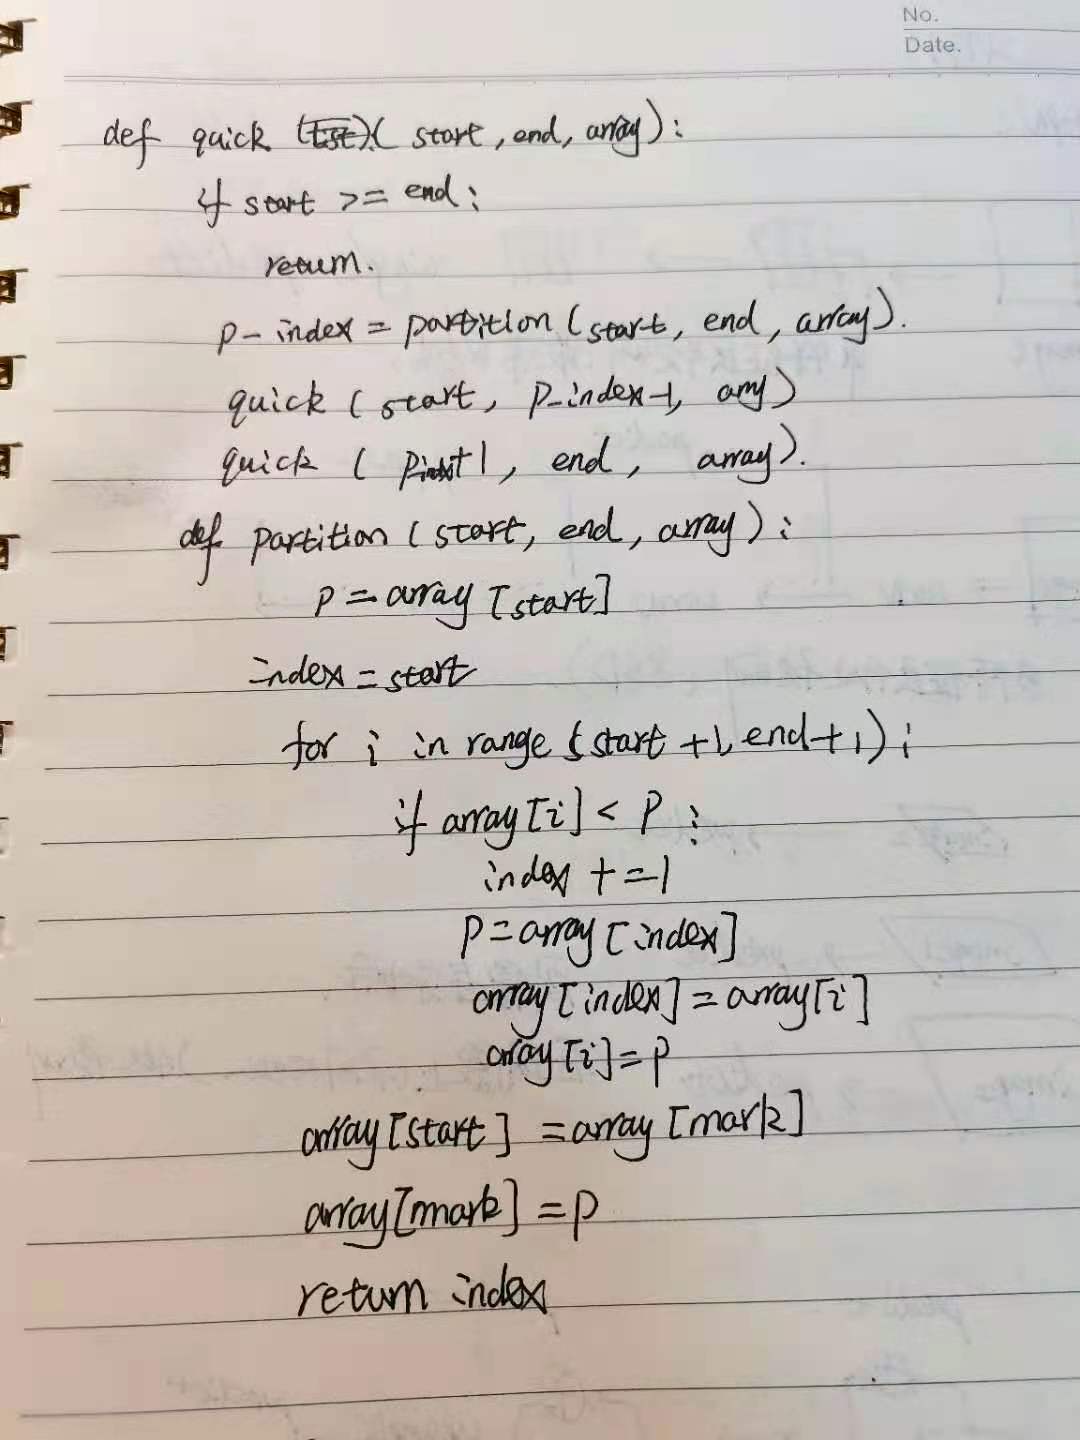 No.
Date.
def quick (start, end, array):
if start >= end:
return.
p_index = partition (start, end, array).
quick (start, p_index-1, array)
quick ( pindex+1, end, array).
def partition (start, end, array):
p = array [start]
index = start
for i in range (start +1, end+1):
if array[i] < p:
index +=1
p = array [index]
array [index] = array[i]
array [i] = p
array [start] = array [mark]
array [mark] = p
return index